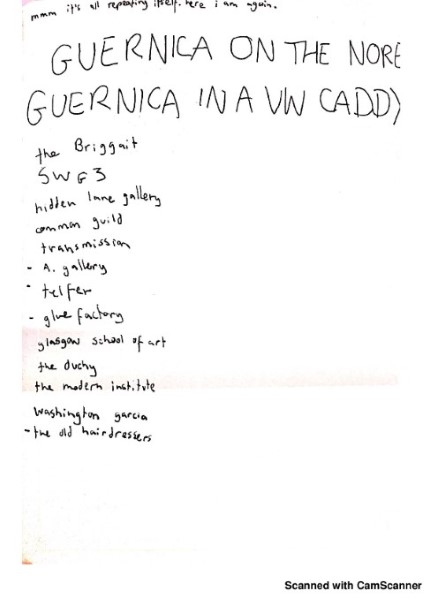 mmm it's all repeating itself. here i am again.
GUERNICA ON THE NORE
GUERNICA IN A VW CADDY
the Briggait
SWG3
hidden lane gallery
common guild
transmission
- A. gallery
- telfer
- glue factory
glasgow school of art
the duchy
the modern institute
Washington garcia
- the old hairdressers
Scanned with CamScanner